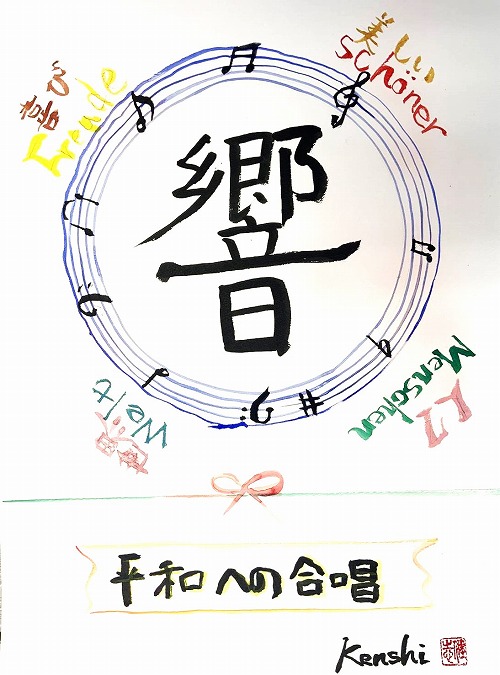 喜び
Freude
美しい
schöner
響
Welt
Menschen
平和への合唱
Kenshi